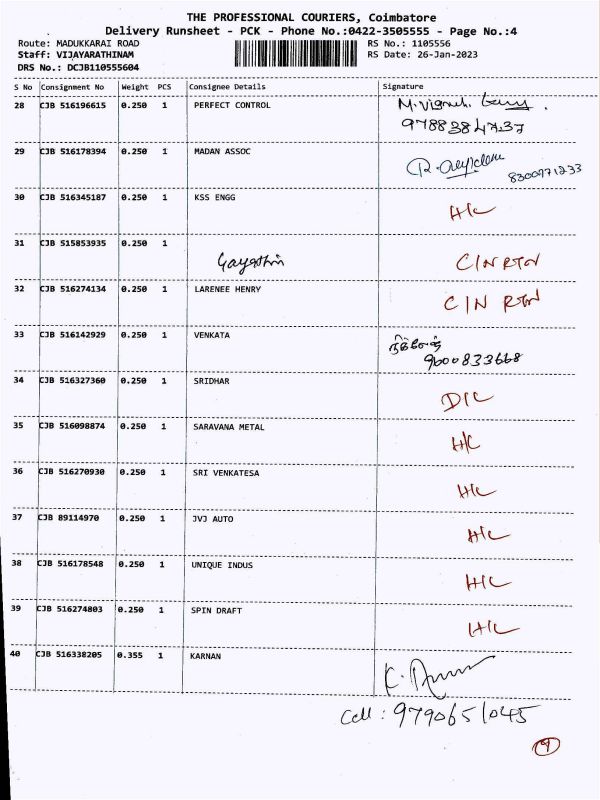 THE PROFESSIONAL COURIERS, Coimbatore
Delivery Runsheet - PCK - Phone No.:0422-3505555 - Page No.:4
Route: MADUKKARAI ROAD RS No.: 1105556
Staff: VIJAYARATHINAM RS Date: 26-Jan-2023
DRS No.: DCJB110555604
S No Consignment No Weight PCS Consignee Details Signature
28 CJB 516196615 0.250 1 PERFECT CONTROL
9788384737
29 CJB 516178394 0.250 1 MADAN ASSOC
8300971233
30 CJB 516345187 0.250 1 KSS ENGG H/C
31 CJB 515853935 0.250 1
C/N RTN
32 CJB 516274134 0.250 1 LARENEE HENRY C/N RTN
33 CJB 516142929 0.250 1 VENKATA
9600833668
34 CJB 516327360 0.250 1 SRIDHAR D/C
35 CJB 516098874 0.250 1 SARAVANA METAL H/C
36 CJB 516270930 0.250 1 SRI VENKATESA H/C
37 CJB 89114970 0.250 1 JVJ AUTO H/C
38 CJB 516178548 0.250 1 UNIQUE INDUS H/C
39 CJB 516274803 0.250 1 SPIN DRAFT H/C
40 CJB 516338205 0.355 1 KARNAN
Cell : 9790651045